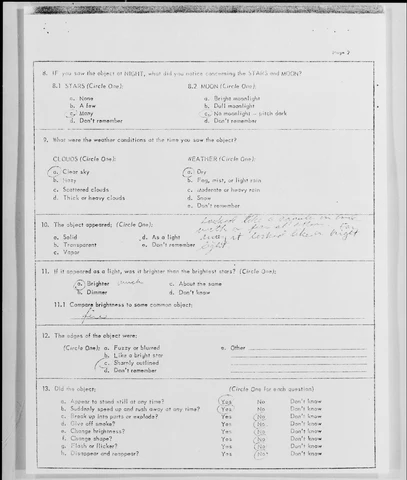 Page 2
8. IF you saw the object at NIGHT, what did you notice concerning the STARS and MOON?
8.1 STARS (Circle One): 8.2 MOON (Circle One):
a. None a. Bright moonlight
b. A few b. Dull moonlight
c. Many c. No moonlight - pitch dark
d. Don't remember d. Don't remember
9. What were the weather conditions at the time you saw the object?
CLOUDS (Circle One): WEATHER (Circle One):
a. Clear sky a. Dry
b. Hazy b. Fog, mist, or light rain
c. Scattered clouds c. Moderate or heavy rain
d. Thick or heavy clouds d. Snow
e. Don't remember
10. The object appeared: (Circle One): Looked like a
a. Solid d. As a light
b. Transparent e. Don't remember away it looked like a bright
c. Vapor light
11. If it appeared as a light, was it brighter than the brightest stars? (Circle One):
a. Brighter much c. About the same
b. Dimmer d. Don't know
11.1 Compare brightness to some common object:
fire
12. The edges of the object were:
(Circle One): a. Fuzzy or blurred e. Other
b. Like a bright star
c. Sharply outlined
d. Don't remember
13. Did the object: (Circle One for each question)
a. Appear to stand still at any time? Yes No Don't know
b. Suddenly speed up and rush away at any time? Yes No Don't know
c. Break up into parts or explode? Yes No Don't know
d. Give off smoke? Yes No Don't know
e. Change brightness? Yes No Don't know
f. Change shape? Yes No Don't know
g. Flash or flicker? Yes No Don't know
h. Disappear and reappear? Yes No Don't know